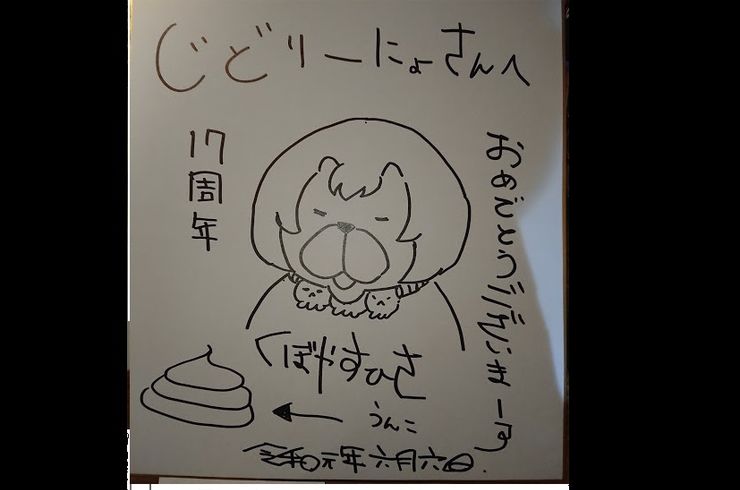 じどりーにょさんへ
17周年
おめでとうございまーす
くぼやすひさ
うんこ
令和元年六月六日.